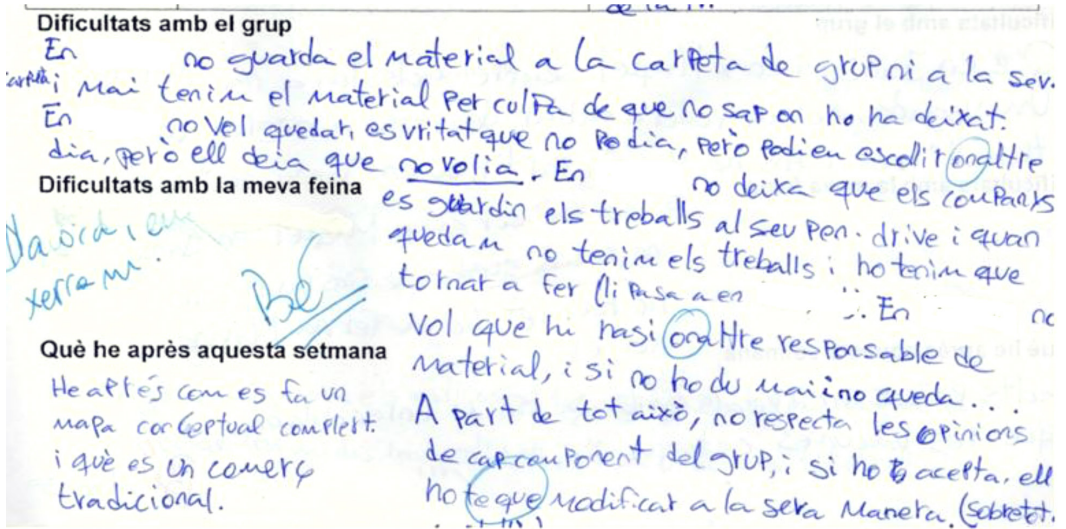 Dificultats amb el grup
En no guarda el material a la carpeta de grup ni a la sev.
carpeta i mai tenim el material per culpa de que no sap on ho ha deixat.
En no vol quedar, es vritat que no podia, però podien escollir onaltre
dia, però ell deia que no volia. En no deixa que els companys
Dificultats amb la meva feina
es guardin els treballs al seu pen-drive i quan
quedam no tenim els treballs i ho tenim que
tornar a fer (li pasa a en
En no
vol que hi hasi onaltre responsable de
material, i si no ho du mai i no queda...
A part de tot això, no respecta les opinions
de cap component del grup, i si ho acepta, ell
ho te que modificar a la seva manera. (sobretot.
D'acord, em
xerram.
Bé
Què he après aquesta setmana
He aprés com es fa un
mapa conceptual complet.
i què es un comerç
tradicional.